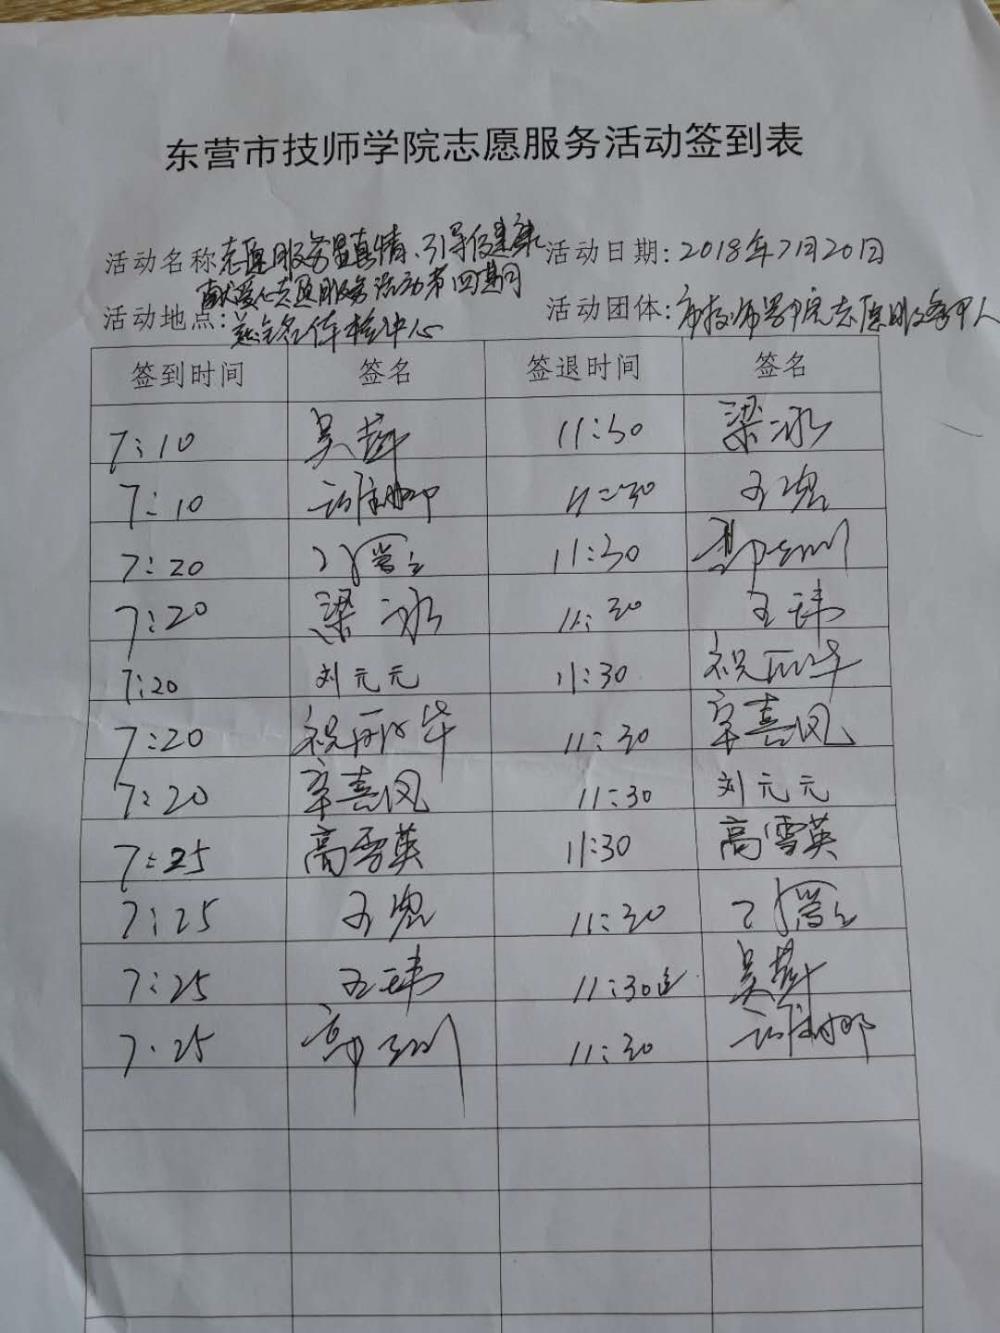 东营市技师学院志愿服务活动签到表
活动名称 志愿服务显真情、引导促健康 活动日期: 2018年7月20日
献爱心志愿服务活动第四期
活动地点: 体检中心 活动团体: 市技师学院志愿服务
签到时间 签名 签退时间 签名
7:10 吴 11:30 梁冰
7:10 11:30 王
7:20 11:30 郭
7:20 梁冰 11:30 王玮
7:20 刘元元 11:30 祝丽华
7:20 祝丽华 11:30 辛喜凤
7:20 辛喜凤 11:30 刘元元
7:25 高雪英 11:30 高雪英
7:25 王 11:30
7:25 王玮 11:30 吴
7:25 郭 11:30